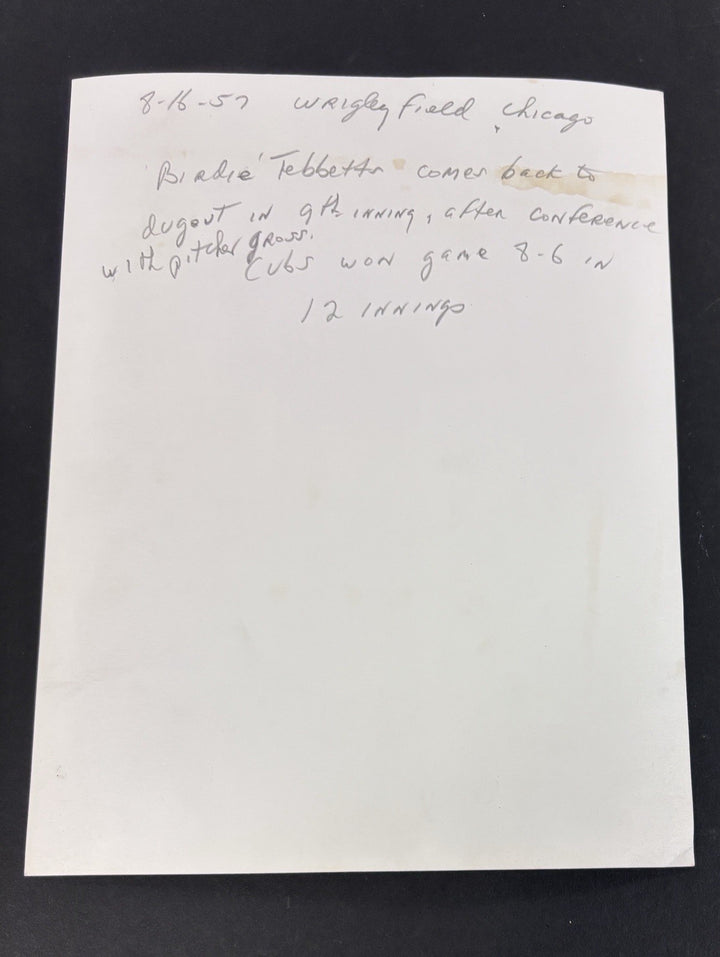 8-16-57 WRigley Field, Chicago
'Birdie' Tebbetts comes back to
dugout in 9th inning, after conference
with pitcher gross.
Cubs won game 8-6 in
12 innings